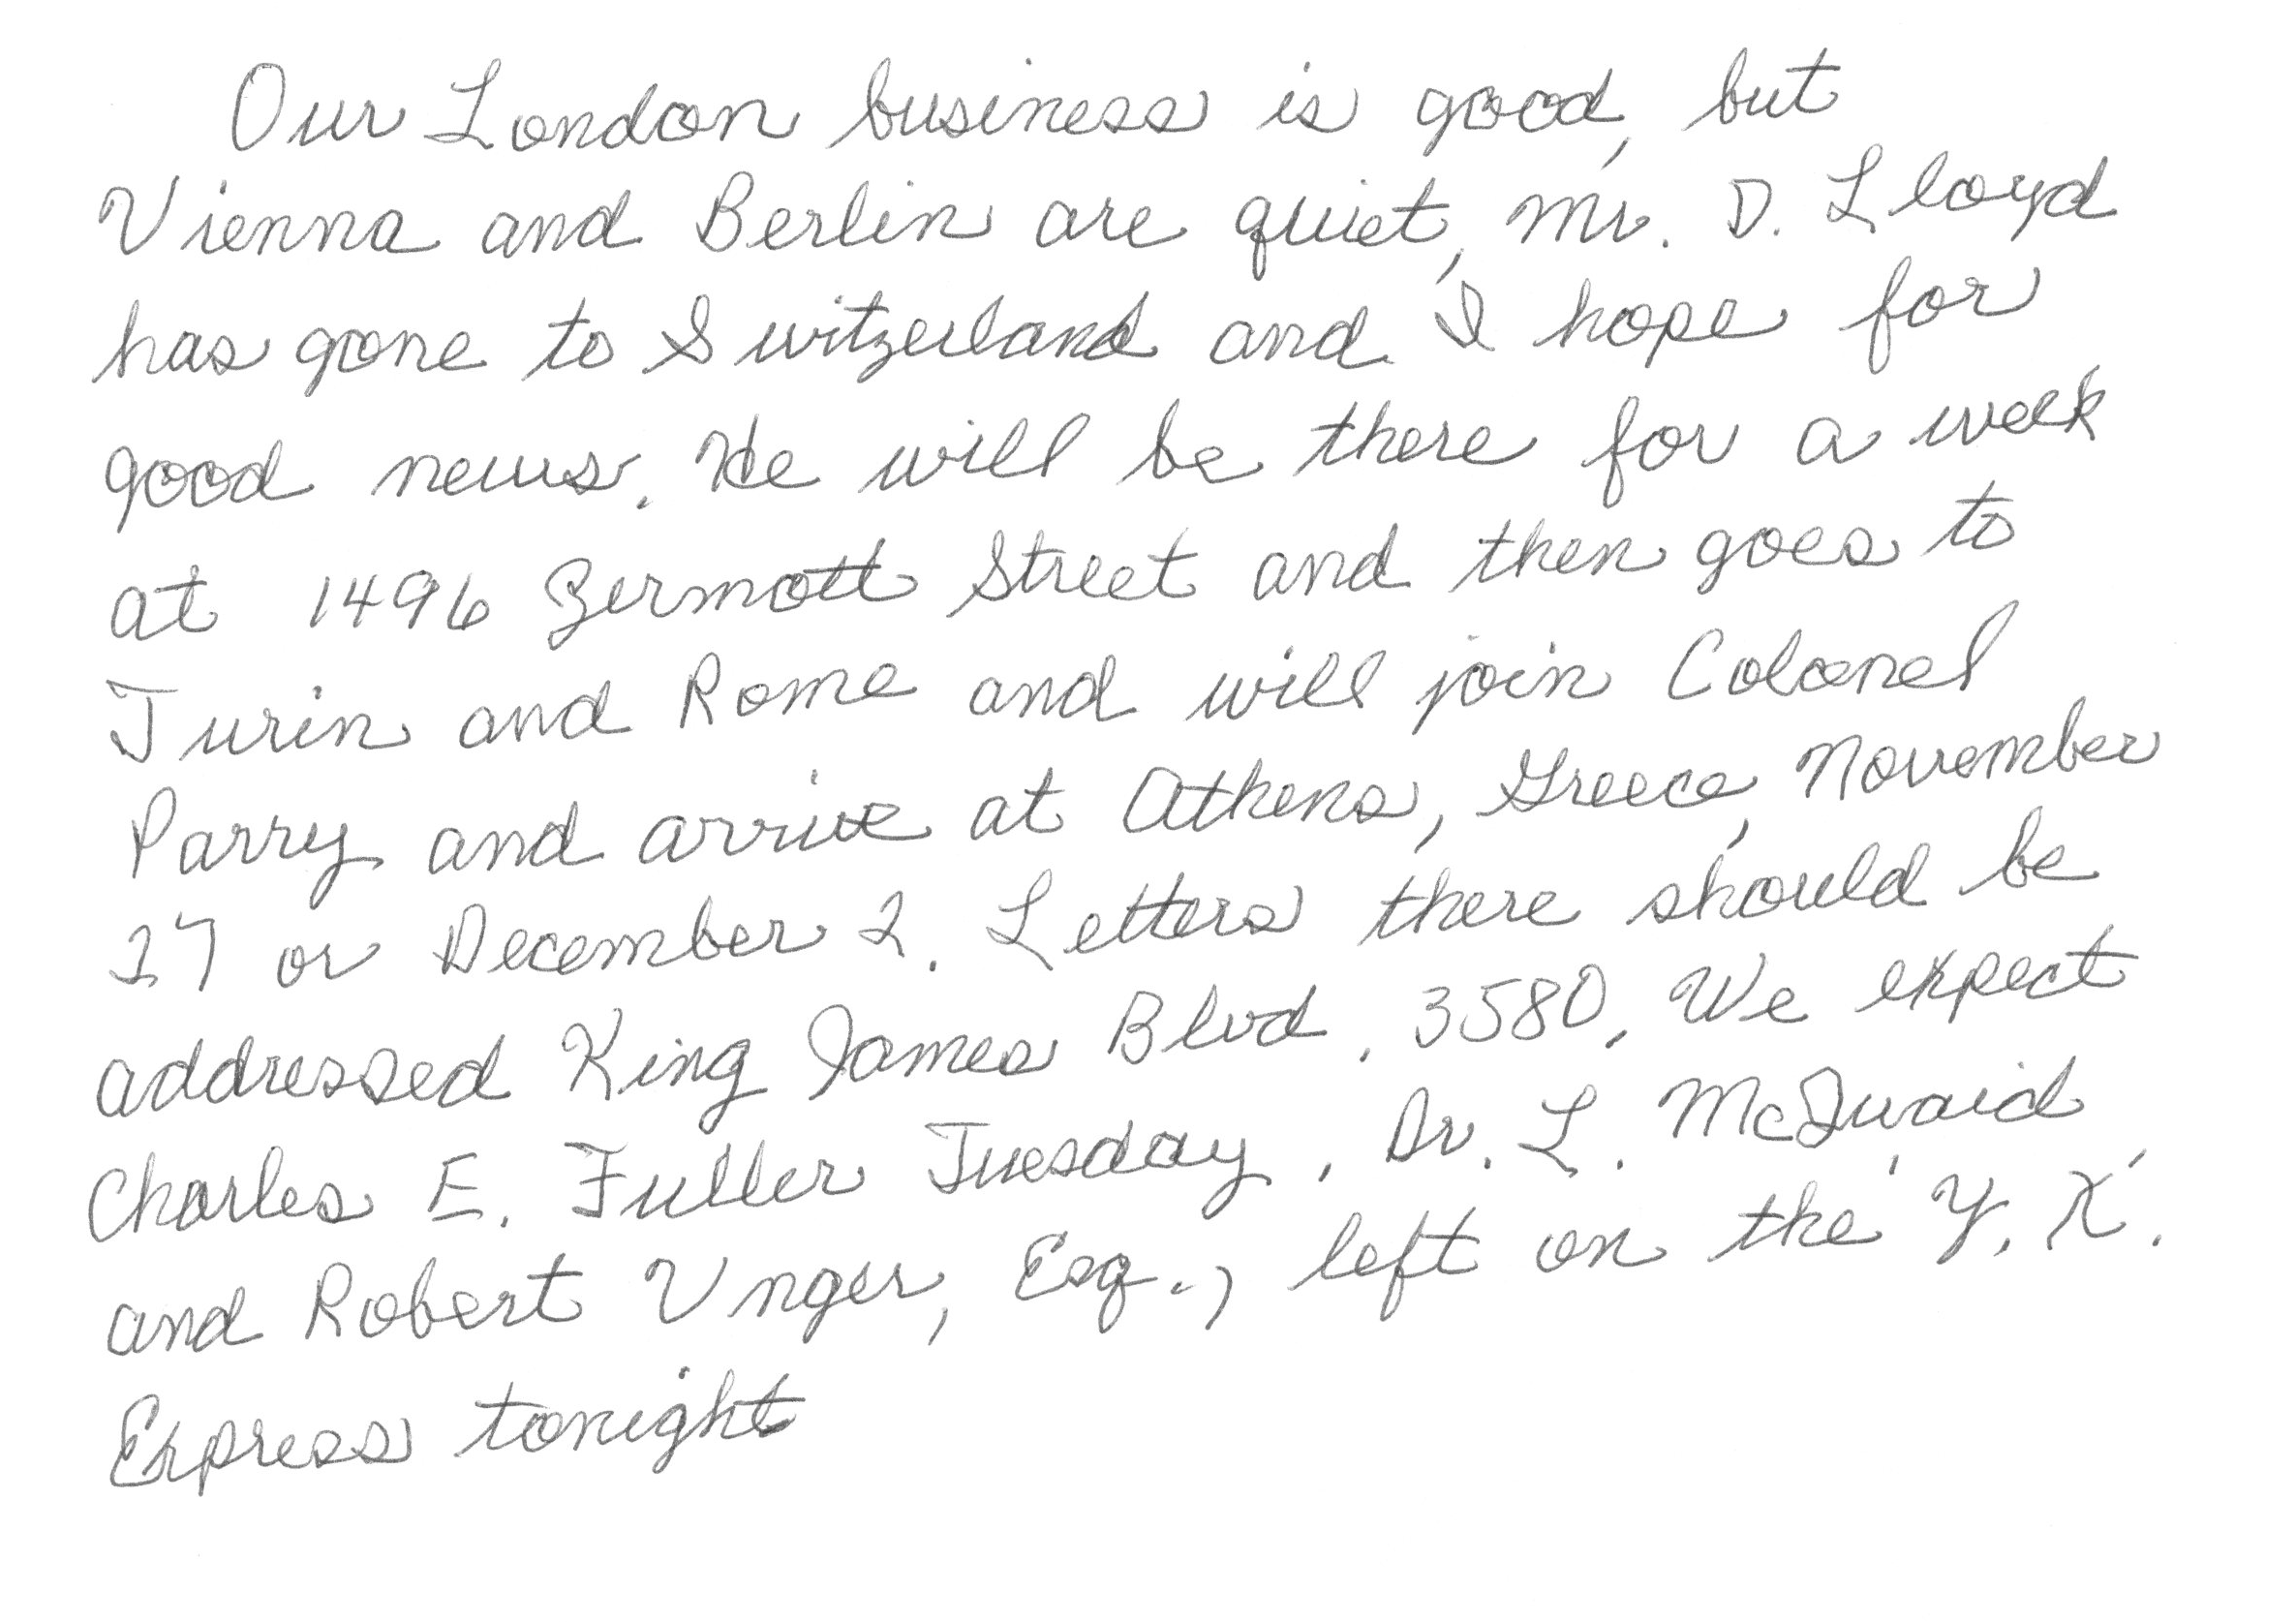 Our London business is good, but
Vienna and Berlin are quiet, Mr. D. Lloyd
has gone to Switzerland and I hope for
good news. He will be there for a week
at 1496 Zermott Street and then goes to
Turin and Rome and will join Colonel
Parry and arrive at Athens, Greece, November
27 or December 2. Letters there should be
addressed King James Blvd. 3580. We expect
Charles E. Fuller Tuesday. Dr. L. McQuaid,
and Robert Unger, Esq., left on the Y. X.
Express tonight